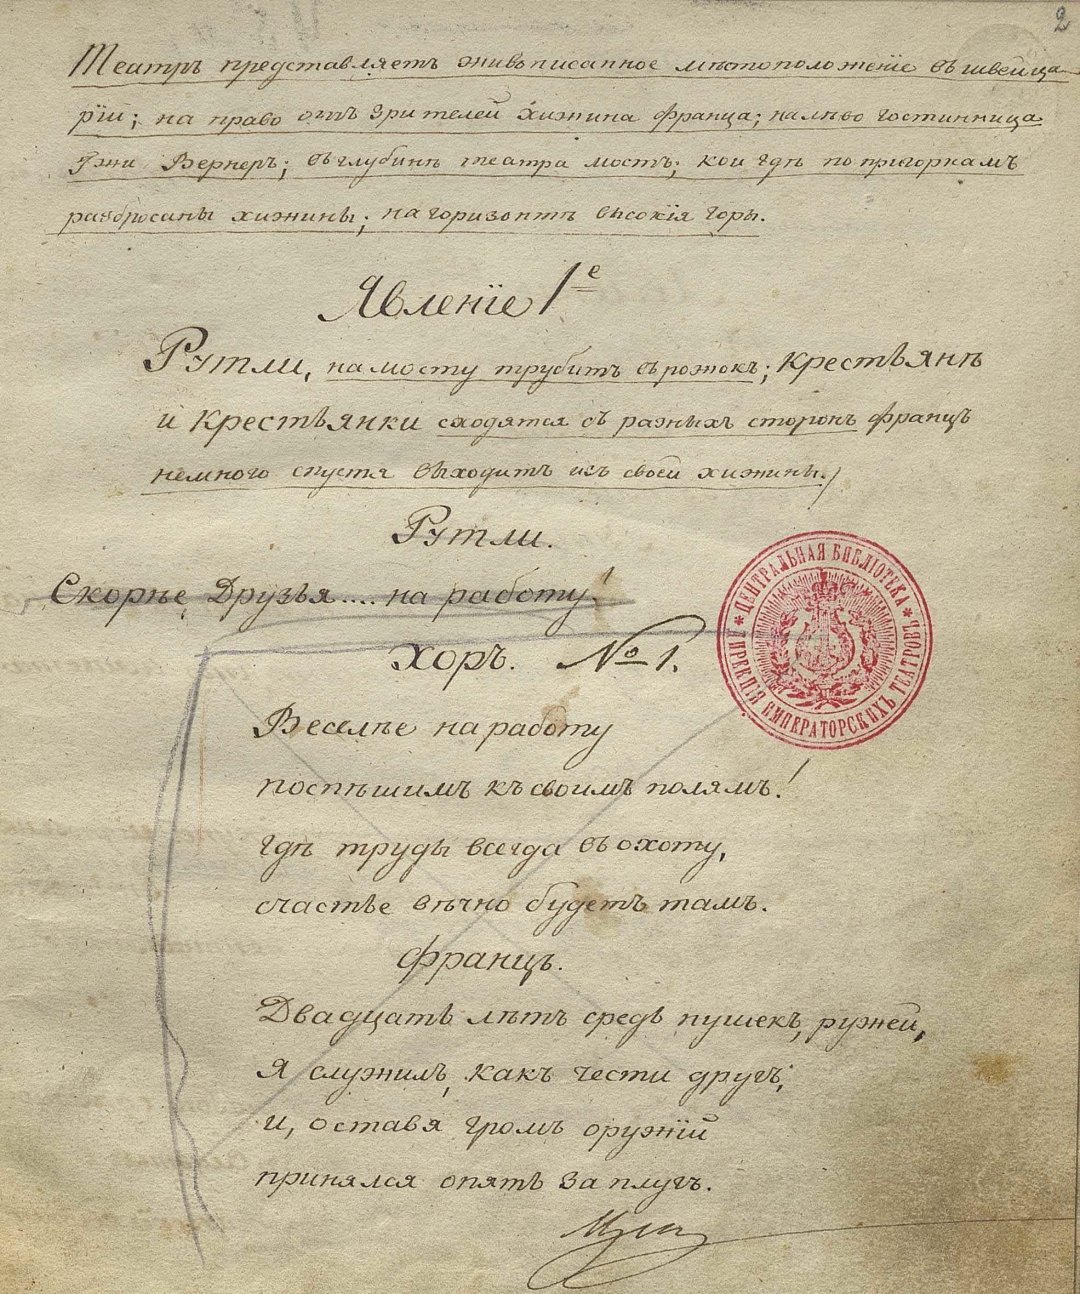 2
Театръ представляетъ живописанное мѣстоположенïе въ швейца-
рïи; на право отъ зрителей хижина Франца; налѣво гостинница
Гжи Вернеръ; въ глубинѣ театра мостъ; кой гдѣ по пригоркамъ
разбросаны хижины; на горизонтѣ высокïя горы.
Явленïе 1е
Рутли, на мосту трубитъ въ рожокъ; Крестьянѣ
и Крестьянки сходятся съ разныхъ сторонъ Францъ
немного спустя выходитъ изъ своей хижины./
Рутли.
Скорѣе, Друзья.... на работу!
Хоръ. № 1.
Веселѣе на работу
поспѣшимъ къ своимъ полямъ!
гдѣ труды всегда въ охоту,
счастье вѣчно будетъ тамъ.
Францъ.
Двадцать лѣтъ средь пушекъ, ружей,
Я служилъ, какъ чести другъ,
и, оставя громъ оружïй
принялся опять за плугъ.
ЦЕНТРАЛЬНАЯ БИБЛІОТЕКА
ДИРЕКЦІЯ ИМПЕРАТОРСКИХЪ ТЕАТРОВЪ